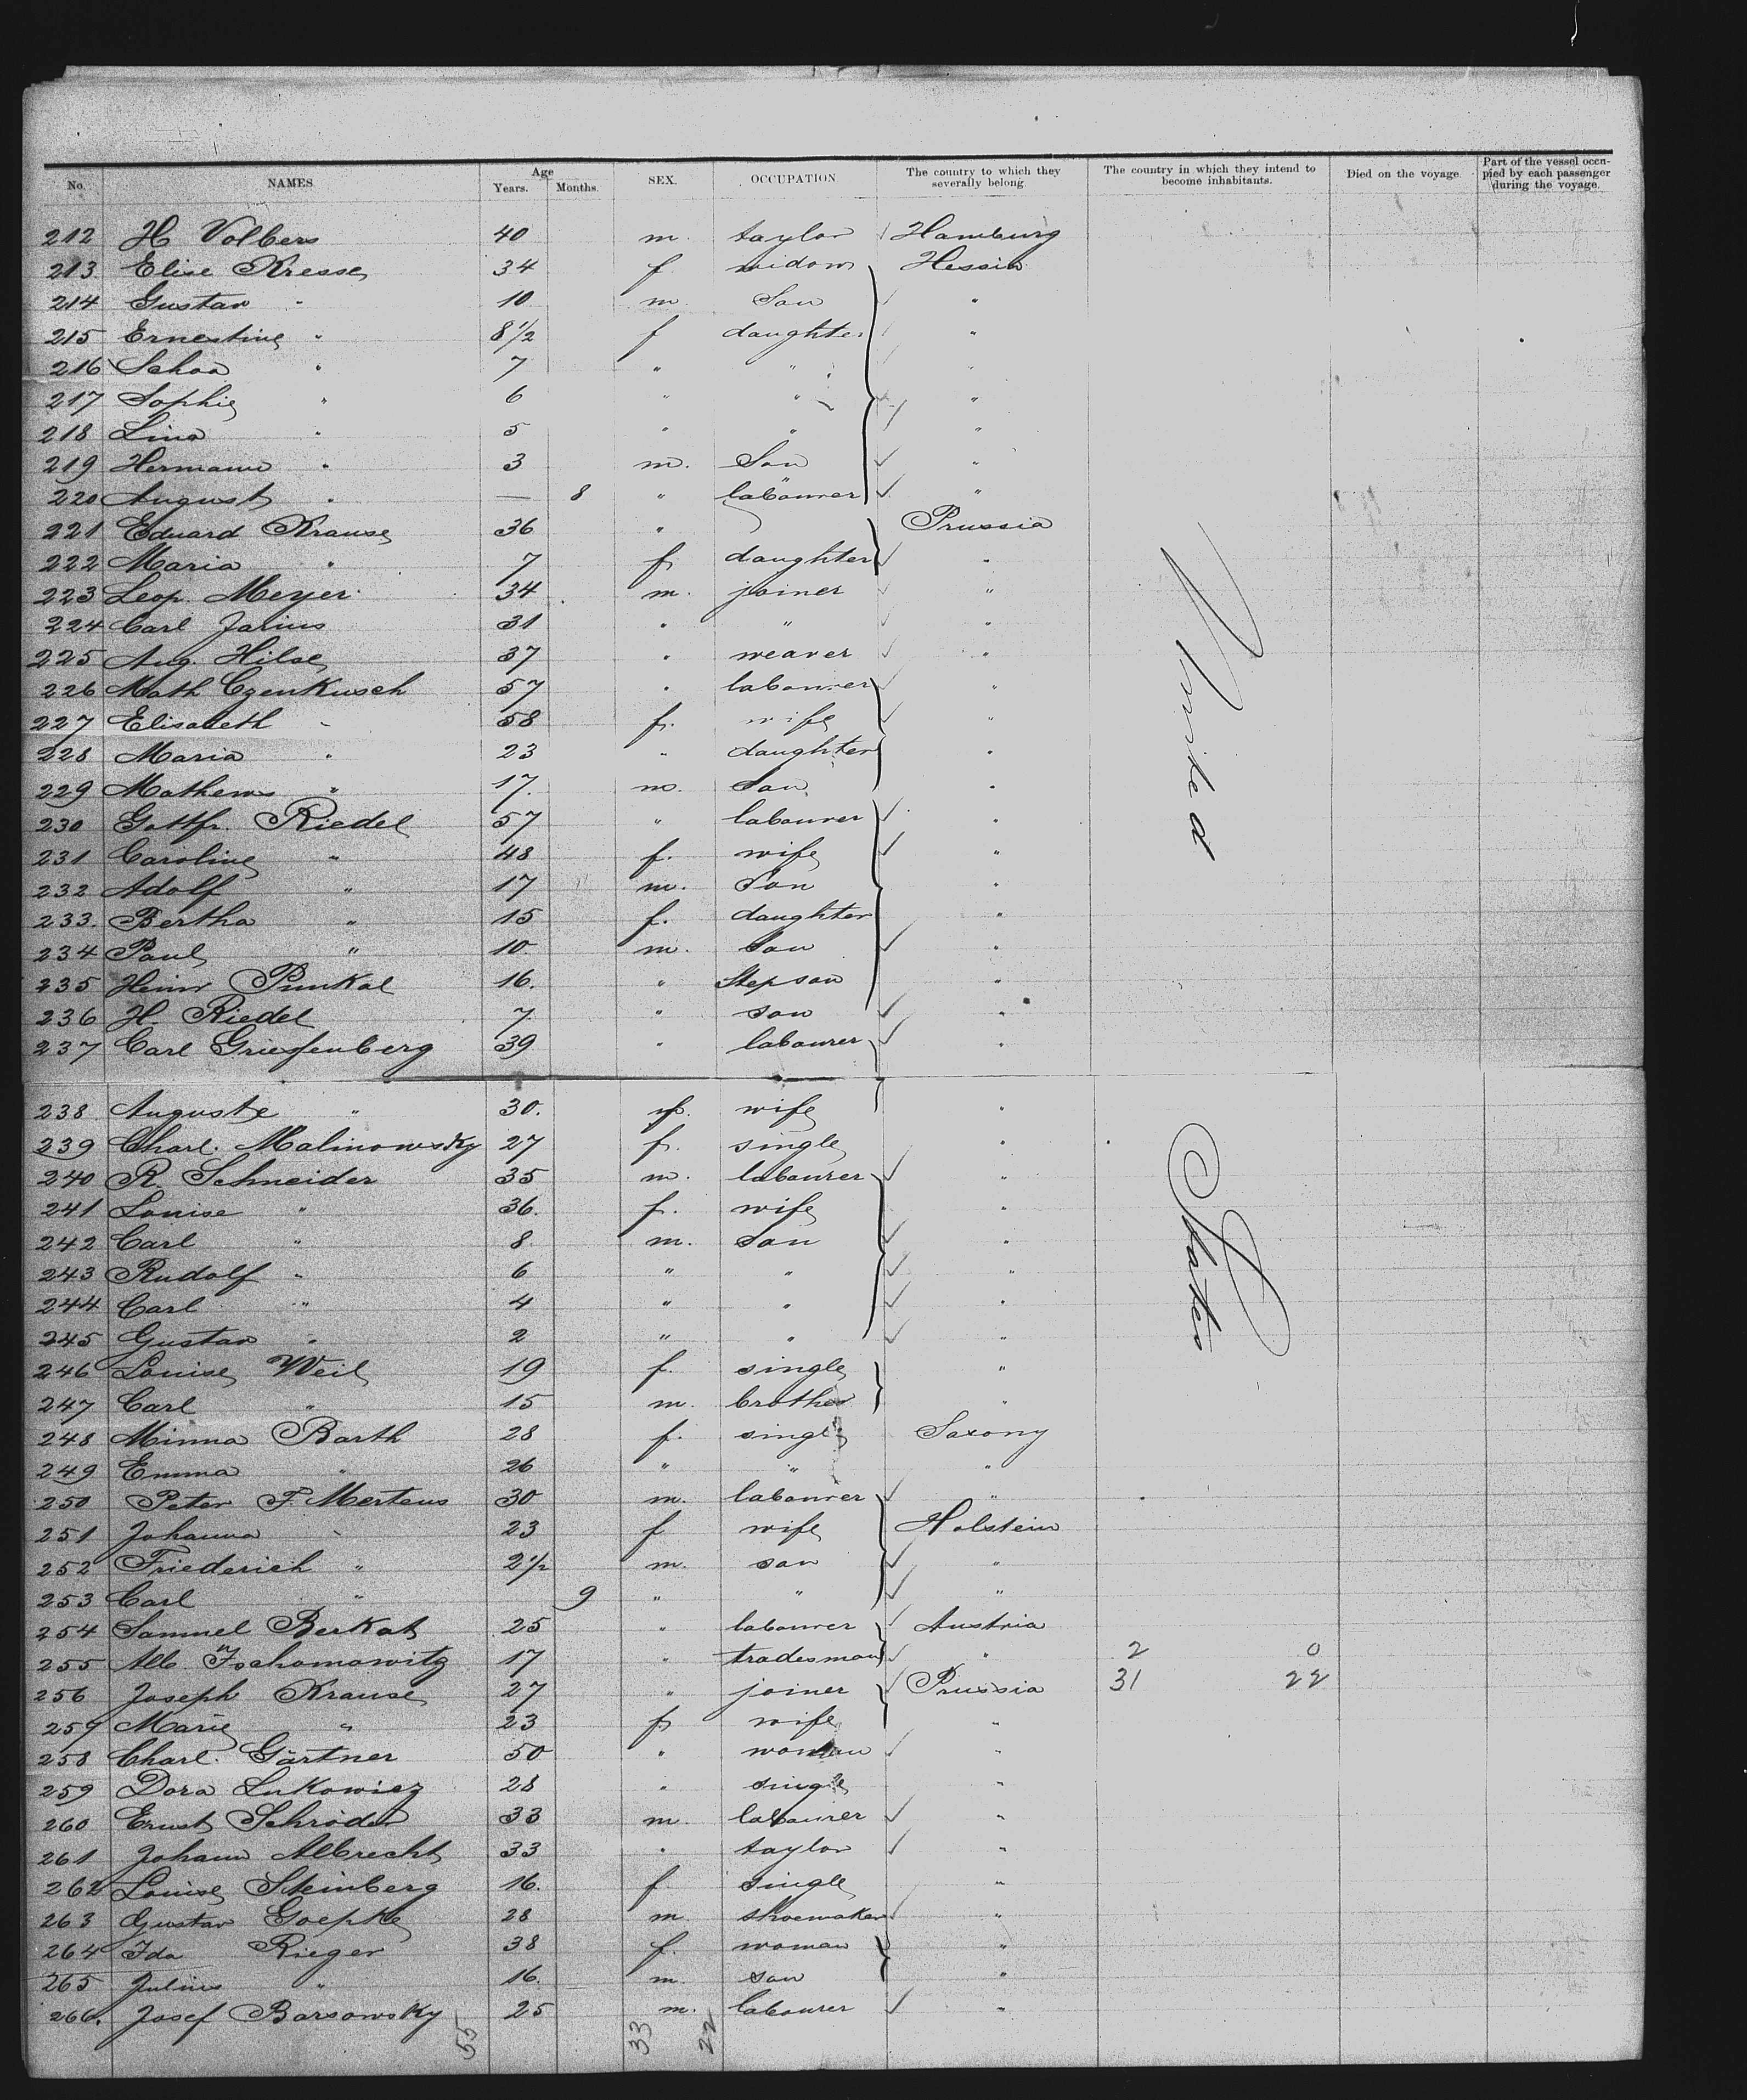 No. NAMES. Age Years. Months. SEX. OCCUPATION The country to which they severally belong. The country in which they intend to become inhabitants. Died on the voyage. Part of the vessel occupied by each passenger during the voyage.
212 H Volbers 40 m. taylor Hamburg
213 Elise Kresse 34 f widow Hessia
214 Gustav " 10 m. Son "
215 Ernestine " 8 1/2 f daughter "
216 " 7 " " "
217 Sophie " 6 " " "
218 Lina " 5 " " "
219 Hermann " 3 m. Son "
220 August " — 8 " " "
221 Eduard Krause 36 " labourer Prussia
222 Maria " 7 f daughter "
223 Leop. Meyer 34 m. joiner "
224 Carl Jarius 31 " " "
225 Aug. Hilse 37 " weaver "
226 Math Czenkusch 57 " labourer "
227 Elisabeth " 58 f. wife "
228 Maria " 23 " daughter "
229 Mathews " 17. m. Son "
230 Gottfr. Riedel 57 " labourer "
231 Caroline " 48 f. wife "
232 Adolf " 17 m. Son "
233. Bertha " 15 f. daughter "
234 Paul " 10 m. Son "
235 Heinr Punkal 16. " Stepson "
236 H. Riedel 7 " son "
237 Carl Griesfenberg 39 " labourer "
United
238 Auguste " 30. f. wife "
239 Charl. Malinowsky 27 f. single "
240 R. Schneider 35 m. labourer "
241 Louise " 36. f. wife "
242 Carl " 8 m. Son "
243 Rudolf " 6 " " "
244 Carl " 4 " " "
245 Gustav " 2 " " "
246 Louise Weil 19 f. single "
247 Carl " 15 m. brother "
248 Minna Barth 28 f. single Saxony
249 Emma " 26 " " "
250 Peter F. Mertens 30 m. labourer "
251 Johanna " 23 f wife Holstein
252 Friederich " 2 1/2 m. son "
253 Carl " 9 " " "
254 Samuel Berkat 25 " labourer Austria
255 Alb. Ischomowitz 17 " tradesman " 2 0
256 Joseph Krause 27 " joiner Prussia 31 22
257 Marie " 23 f wife "
258 Charl. Gärtner 50 " woman "
259 Dora Lukowicz 28 " single "
260 Ernst Schröder 33 m. labourer "
261 Johann Albrecht 33 " taylor "
262 Louise Steinberg 16. f single "
263 Gustav Goepke 28 m shoemaker "
264 Ida Rieger 38 f. woman "
265 Julius " 16. m. son "
266. Josef Barsowsky 25 m. labourer "
States
55 33 22